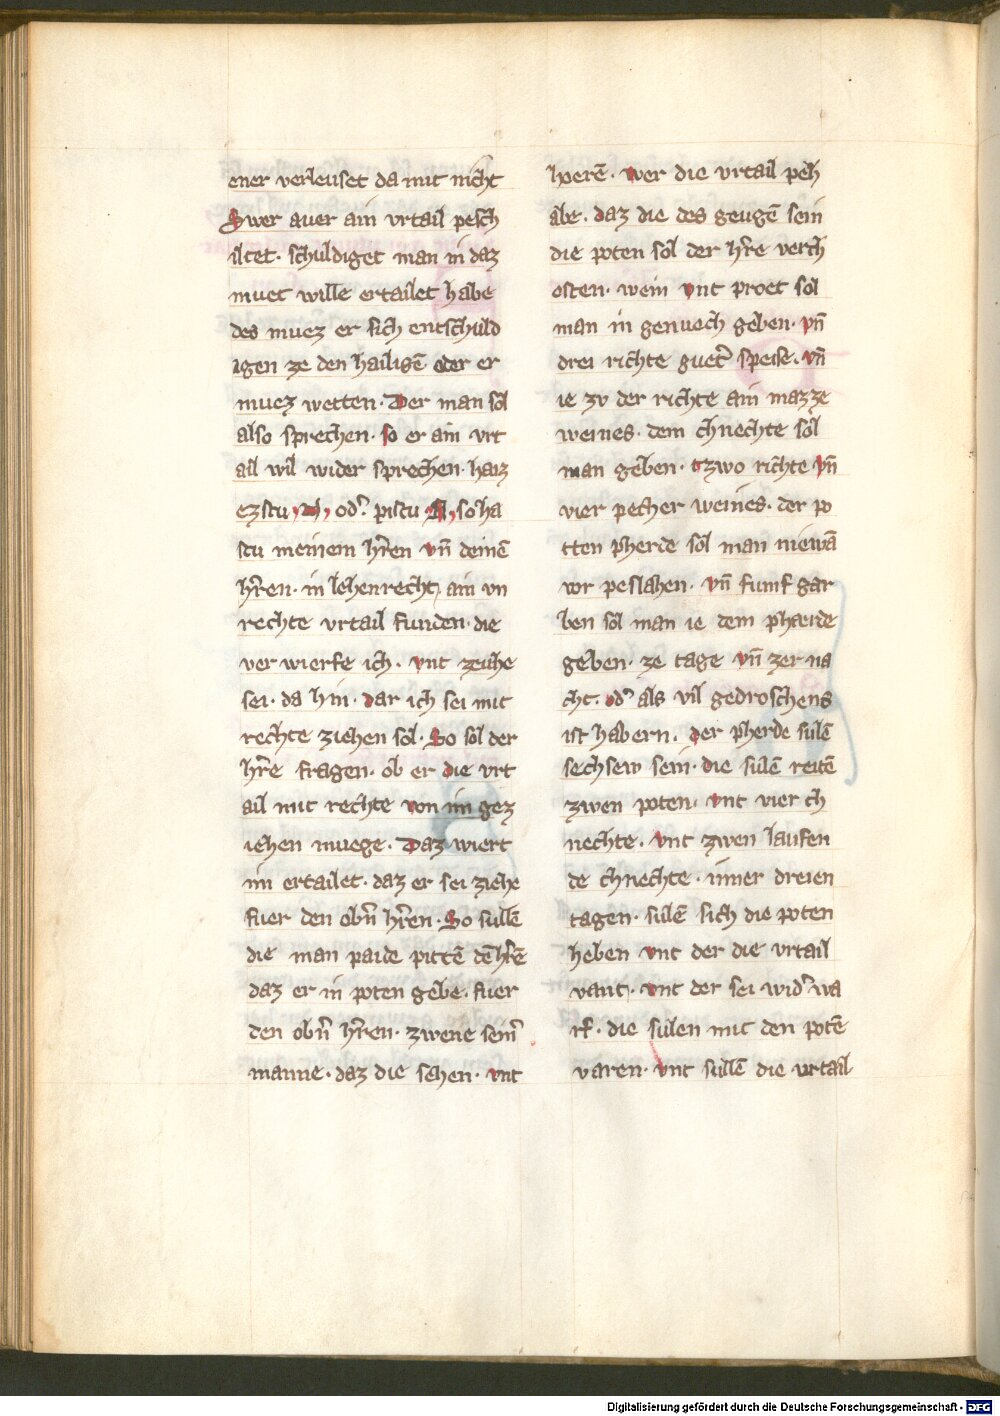 ener verleuset da mit nicht
Swer auer ain vrtail pesch
iltet · schuldiget man in daz
muet wille ertailet habe
des muez er sich entschuld
igen ze den hailigē oder er
muez wetten · Der man sol
also sprechen · so er ain vrt
ail wil wider sprechen · haiz
ezstu, H, od᷑ pistu, A, so ha
stu meinem hr̄en vn̄ deinē
hr̄en · in lehenrecht, ain vn
rechte vrtail funden · die
ver wierfe ich · vnt zeuhe
sei · da hin · dar ich sei mit
rechte ziehen sol · So sol der
hr̄e fragen · ob er die vrt
ail mit rechte von im gez
iehen muege · Daz wiert
im ertailet · daz er sei ziehe
fuer den obn̄ hr̄en · So sullē
die man paide pittē dē hr̄ē
daz er in poten gebe · fuer
den obn̄ hr̄en · zwene sein᷑
manne · daz die sehen · vnt
hoerē · wer die vrtail peh
abe · daz die des geugē sein
die poten sol der hr̄re verch
osten · wein vnt proet sol
man in genuech geben · vn̄
drei richte guet᷑ speise · vn̄
ie zv der richte ain mazze
weines · dem chnechte sol
man geben · tzwo richte vn̄
vier pecher weines · der po
tten pherde sol man niewā
vor peslahen · vn̄ fumf gar
ben sol man ie dem phaerde
geben · ze tage vn̄ zer na
cht · od᷑ als vil gedroschens
ist habern · der pherde sulē
sechsew sein · die sulē reitē
zwen poten · vnt vier ch
nechte · vnt zwen laufen
de chnechte · inner dreien
tagen · sulē sich die poten
heben vnt der die vrtail
vant · vnt der sei wid᷑ wa
rf · die sulen mit den potē
varen · vnt sullē die vrtail
Digitalisierung gefördert durch die Deutsche Forschungsgemeinschaft - DFG